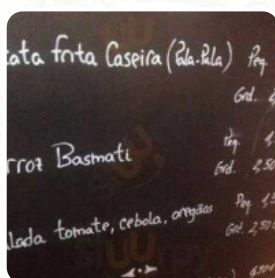 ata frita Caseira (Pala-Pala) Peq.
Grd.
rroz Basmati Peq.
Grd. 2,50
lada tomate, cebola, oregãos Peq. 1,5
Grd. 2,50